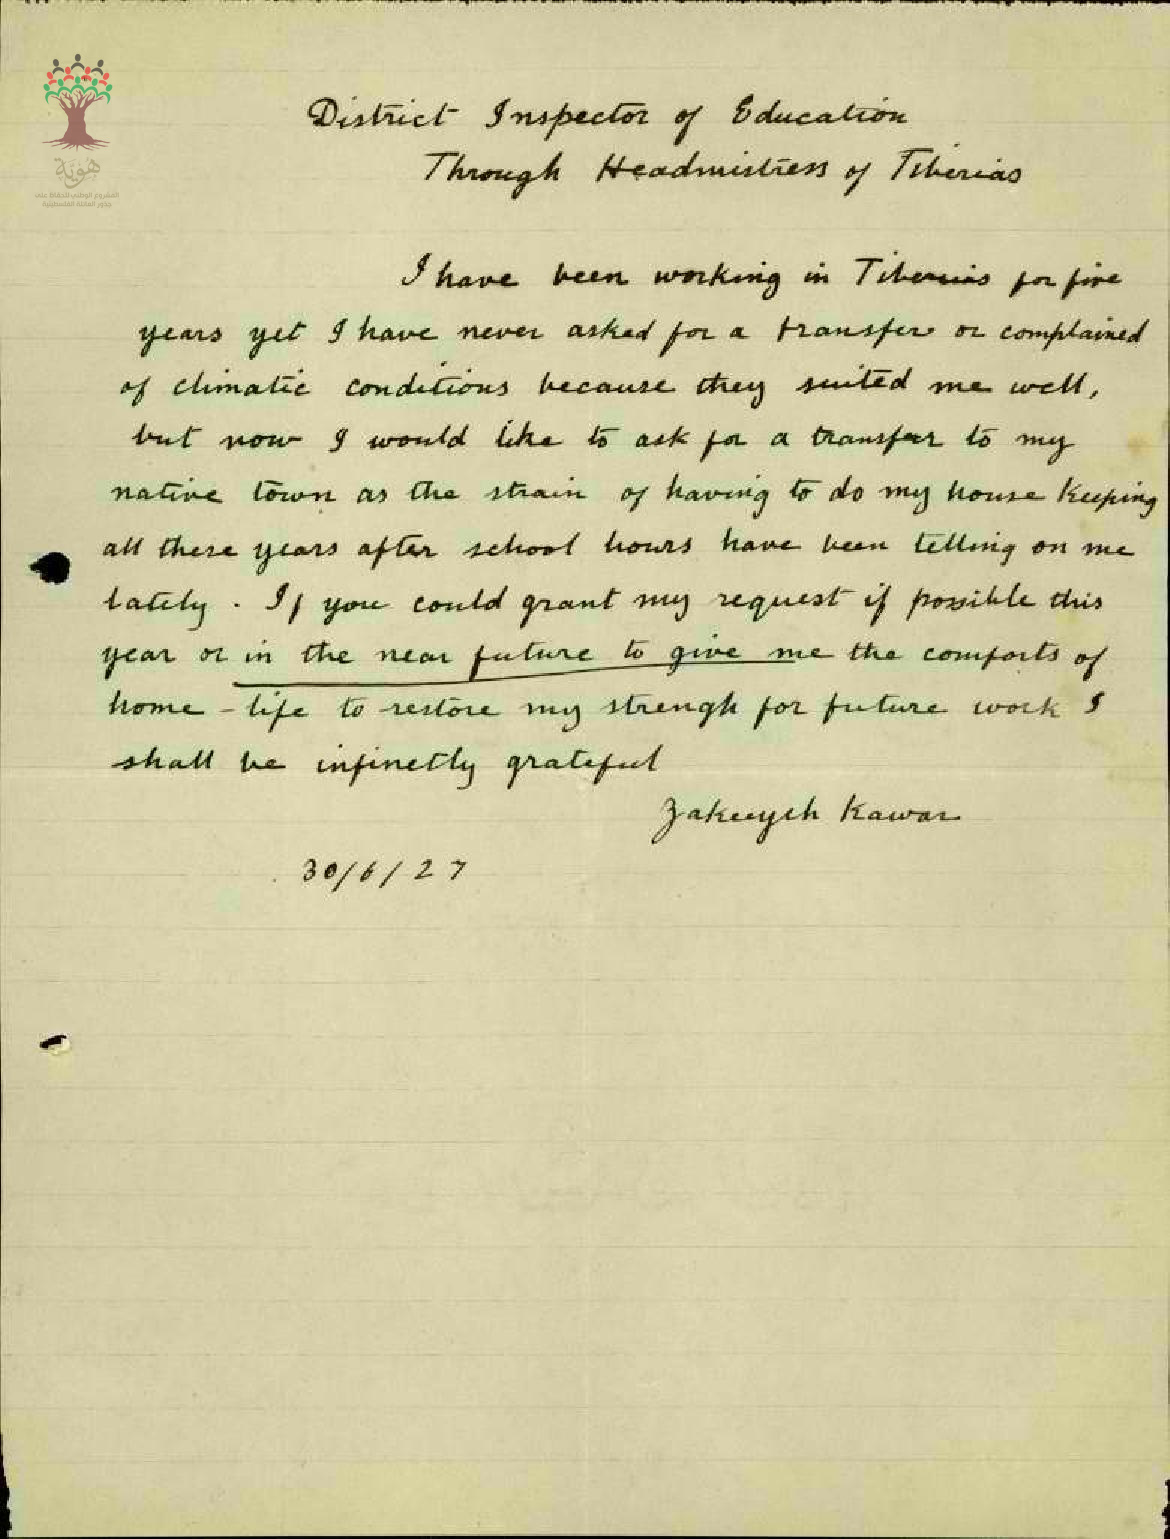 هوية
المشروع الوطني للحفاظ على
جذور العائلة الفلسطينية
District Inspector of Education
Through Headmistress of Tiberias
I have been working in Tiberias for five
years yet I have never asked for a transfer or complained
of climatic conditions because they suited me well,
but now I would like to ask for a transfer to my
native town as the strain of having to do my house keeping
all these years after school hours have been telling on me
lately. If you could grant my request if possible this
year or in the near future to give me the comforts of
home-life to restore my strengh for future work I
shall be infinetly grateful
Zakeeyeh Kawar
30/6/27